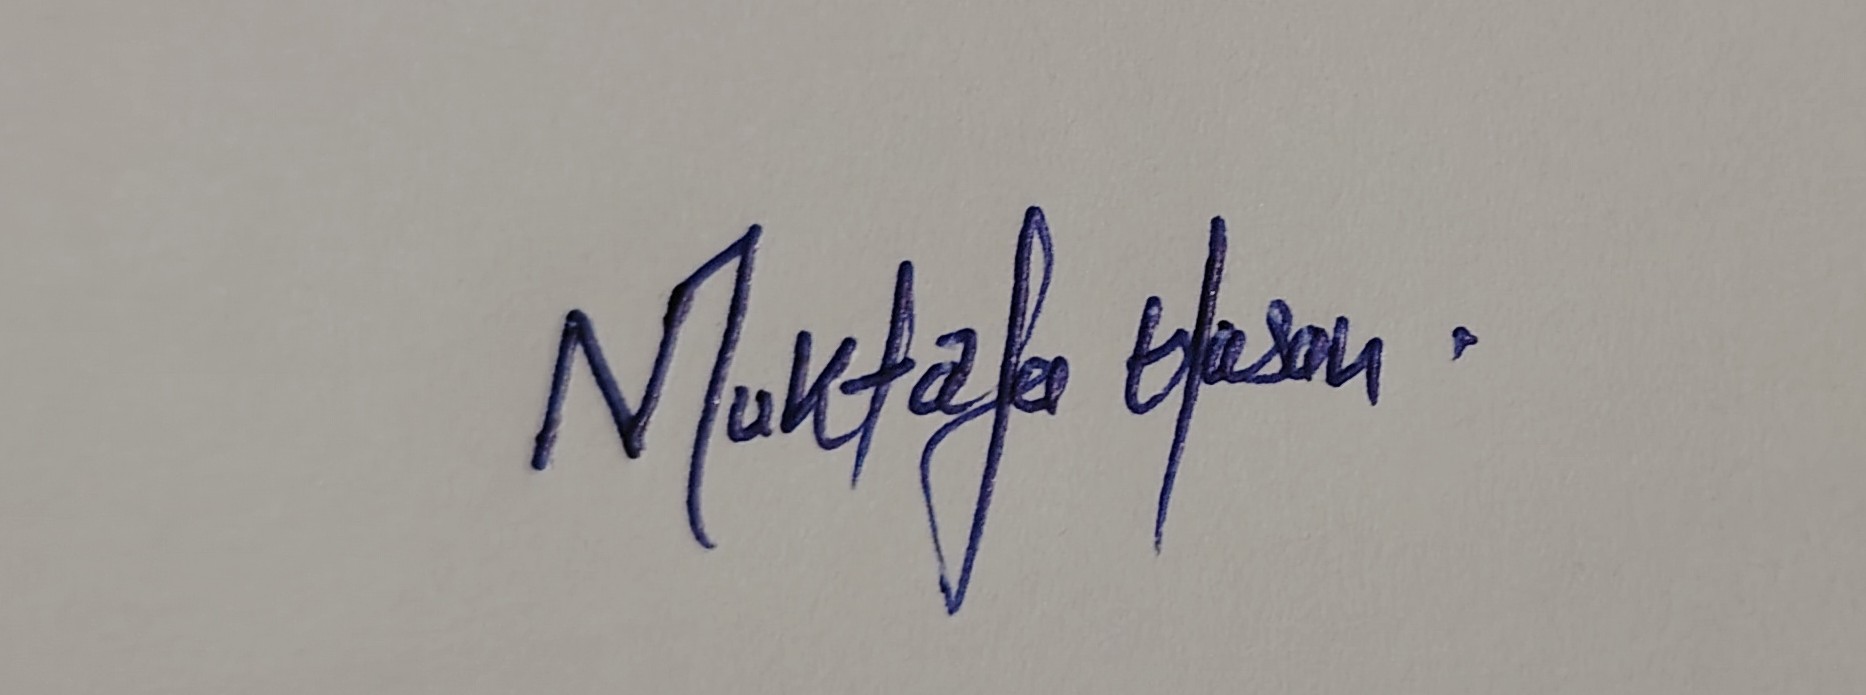 Muktafa Hasan.